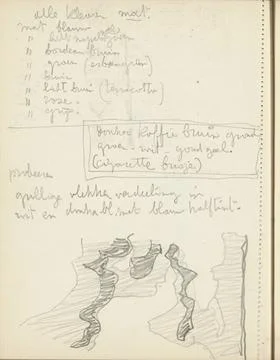 alle kleuren mat.
mat blauw
" bordeau bruin
" groen (
" bruin
" licht bruin (terracotta)
" roze.
" grijs.
donker koffie bruin
groen - wit - goud geel.
(cigarette
proberen
grillige vlekken verdeeling in
wit en donkerbl. met blauw halftint.